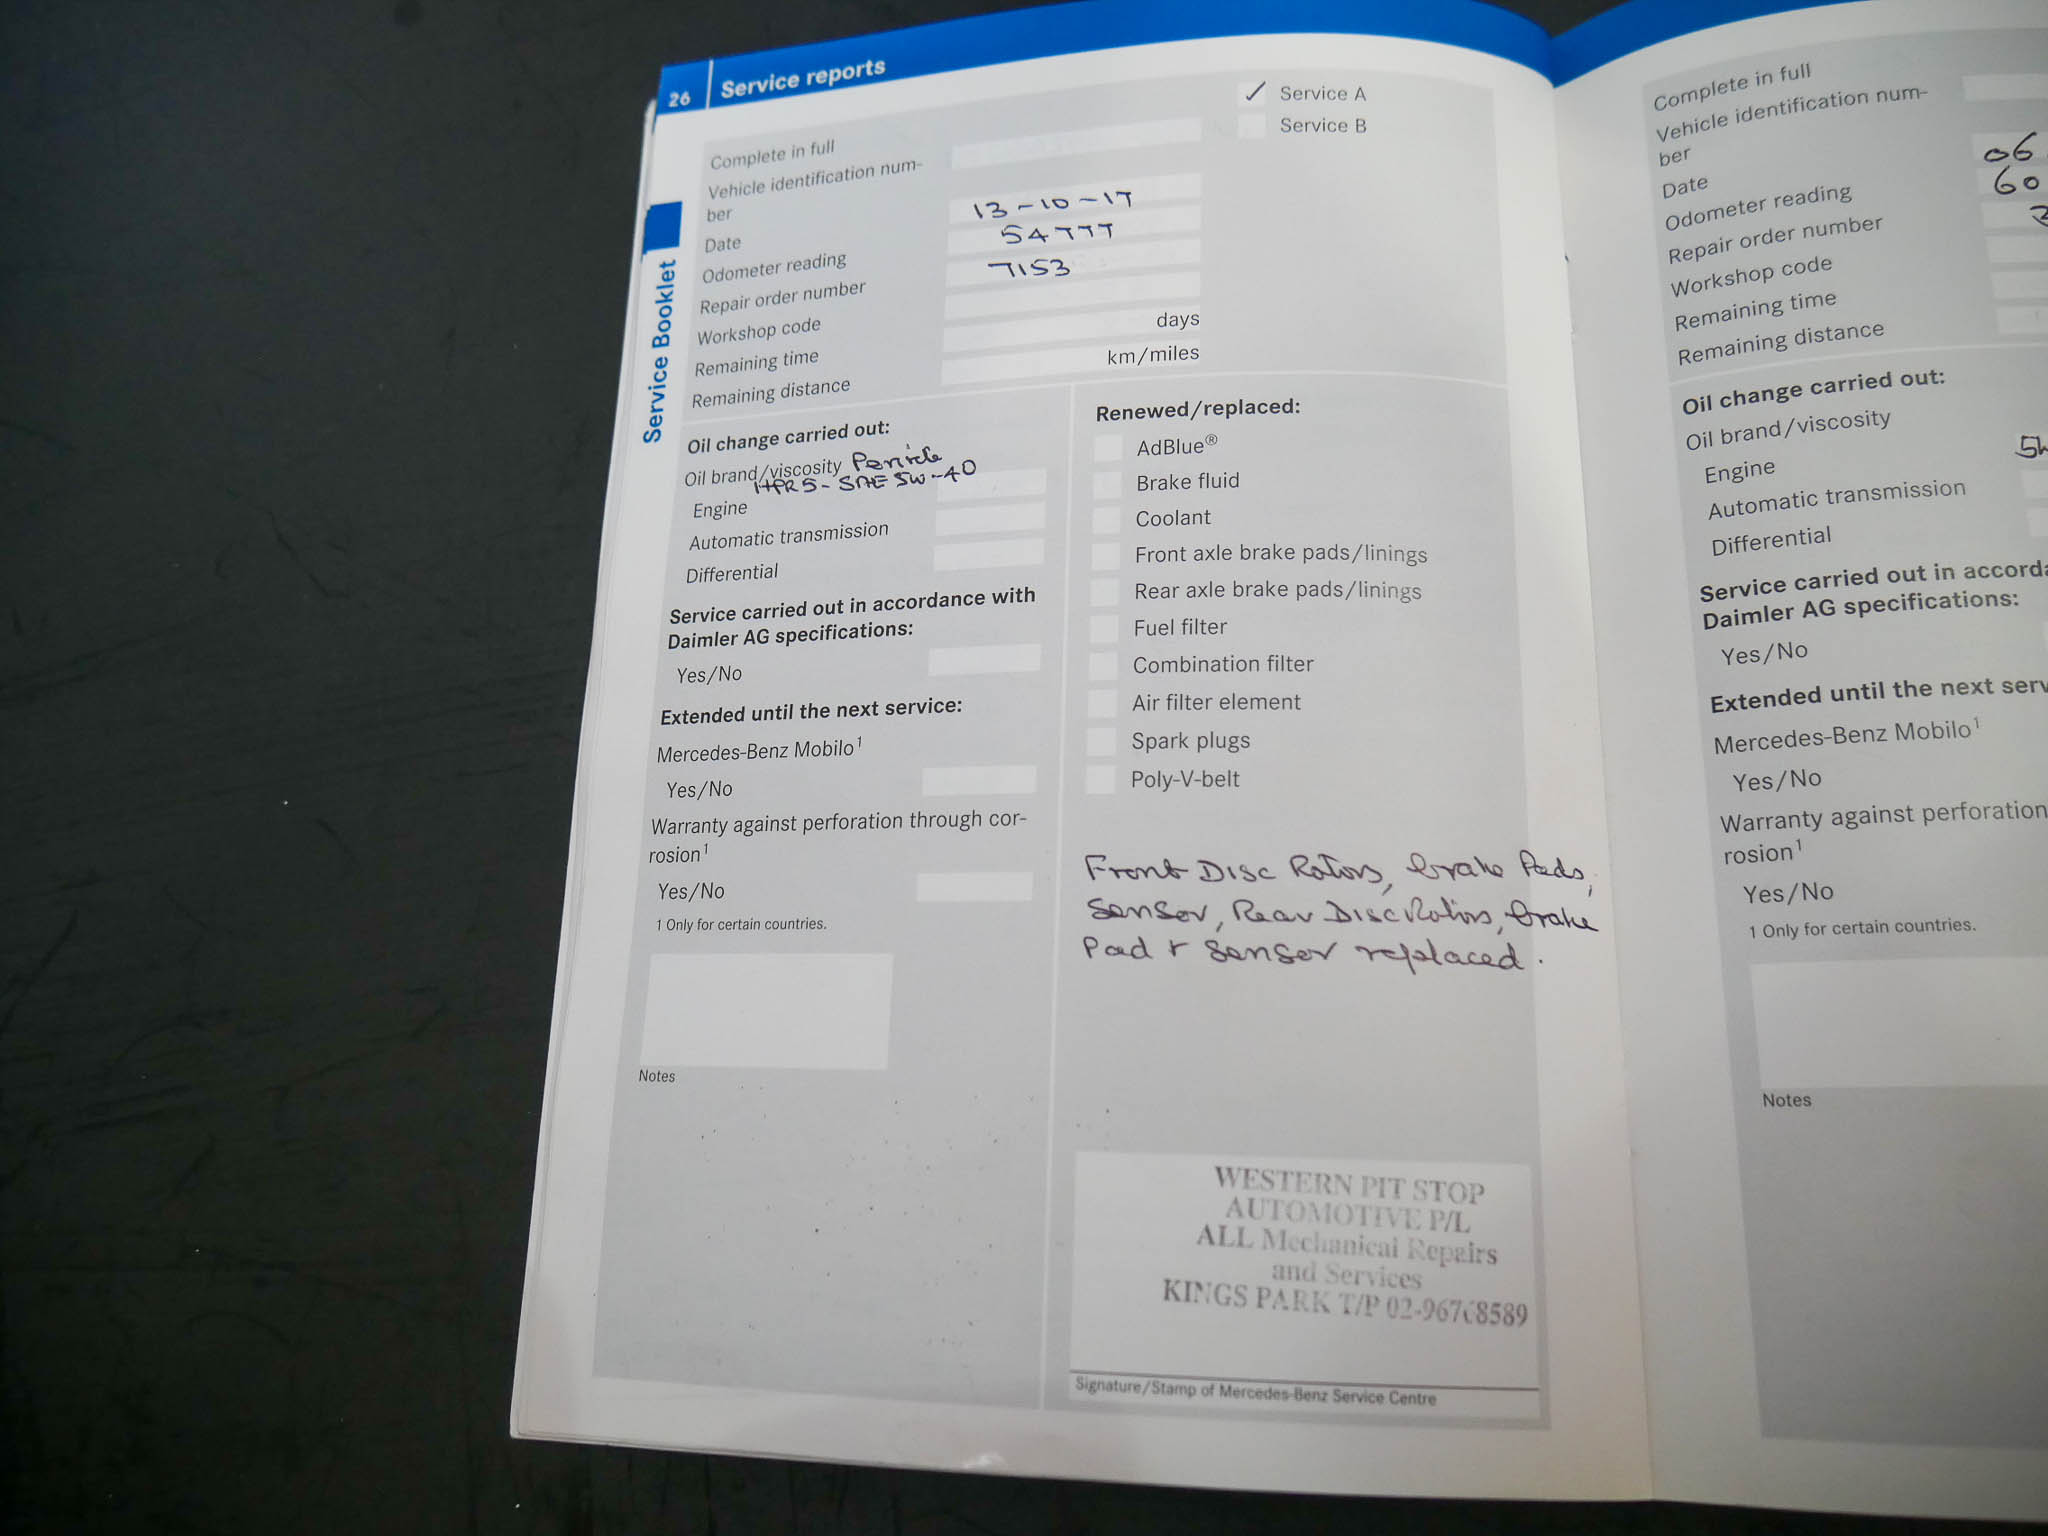 26 Service reports
Service Booklet
Service A
Service B
Complete in full
Vehicle identification num-
ber
Date 13-10-17
Odometer reading 54777
Repair order number 7153
Workshop code
Remaining time days
Remaining distance km/miles
Oil change carried out:
Oil brand/viscosity
Engine HPR5-SAE 5W-40
Automatic transmission
Differential
Service carried out in accordance with
Daimler AG specifications:
Yes/No
Extended until the next service:
Mercedes-Benz Mobilo¹
Yes/No
Warranty against perforation through cor-
rosion¹
Yes/No
1 Only for certain countries.
Notes
Renewed/replaced:
AdBlue®
Brake fluid
Coolant
Front axle brake pads/linings
Rear axle brake pads/linings
Fuel filter
Combination filter
Air filter element
Spark plugs
Poly-V-belt
Front Disc Rotors, brake Pads,
Sensor, Rear Disc Rotors, brake
Pad + Sensor replaced.
WESTERN PIT STOP
AUTOMOTIVE P/L
ALL Mechanical Repairs
and Services
KINGS PARK T/P 02-96768589
Signature/Stamp of Mercedes-Benz Service Centre
Complete in full
Vehicle identification num-
ber
Date 06
Odometer reading 60
Repair order number
Workshop code
Remaining time
Remaining distance
Oil change carried out:
Oil brand/viscosity
Engine
Automatic transmission
Differential
Service carried out in accorda
Daimler AG specifications:
Yes/No
Extended until the next serv
Mercedes-Benz Mobilo¹
Yes/No
Warranty against perforation
rosion¹
Yes/No
1 Only for certain countries.
Notes